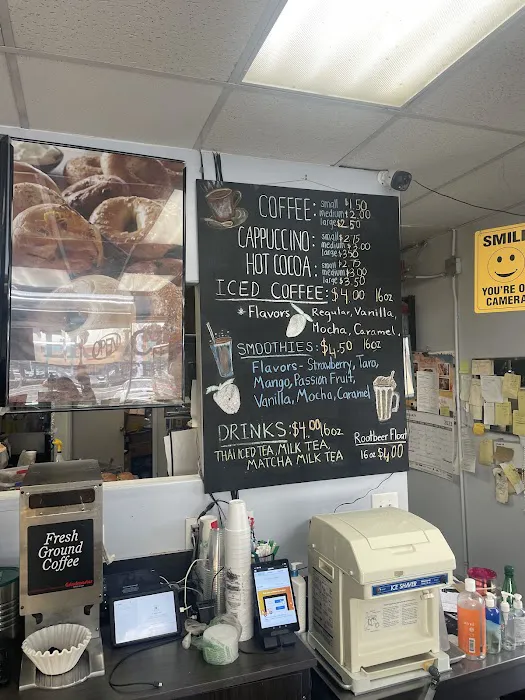 COFFEE: small $1.50
medium $2.00
large $2.50
CAPPUCCINO: small $2.75
medium $3.00
large $3.50
HOT COCOA: small $2.75
medium $3.00
large $3.50
ICED COFFEE: $4.00 16oz
* Flavors Regular, Vanilla,
Mocha, Caramel.
SMOOTHIES: $4.50 16oz
Flavors - Strawberry, Taro,
Mango, Passion Fruit,
Vanilla, Mocha, Caramel
DRINKS: $4.00 16oz
THAI ICED TEA, MILK TEA,
MATCHA MILK TEA
Rootbeer Float
16oz $4.00
SMILE
YOU'RE O
CAMERA
Fresh
Ground
Coffee
ICE SHAVER